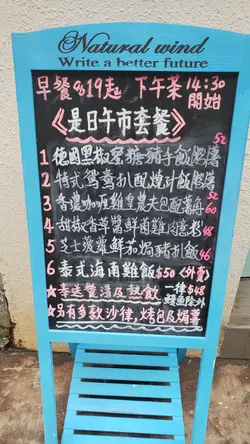 Natural wind
Write a better future
早餐 $19起 下午茶 14:30
開始
《是日午市套餐》
52
1 德國黑椒豬手飯
2 特式鴛鴦扒配燒汁飯
52
3 香濃咖喱皇薯角
60
4 甜椒香草醬鮮茴雞肉意粉 48
5 芝士菠蘿鮮茄焗豬扒飯 46
6 泰式海南雞飯 $50 (外賣)
一律 $48
★ 奉送餐湯及熱飲 鰻魚除外
★ 另有多款沙律,烤包及焗薯